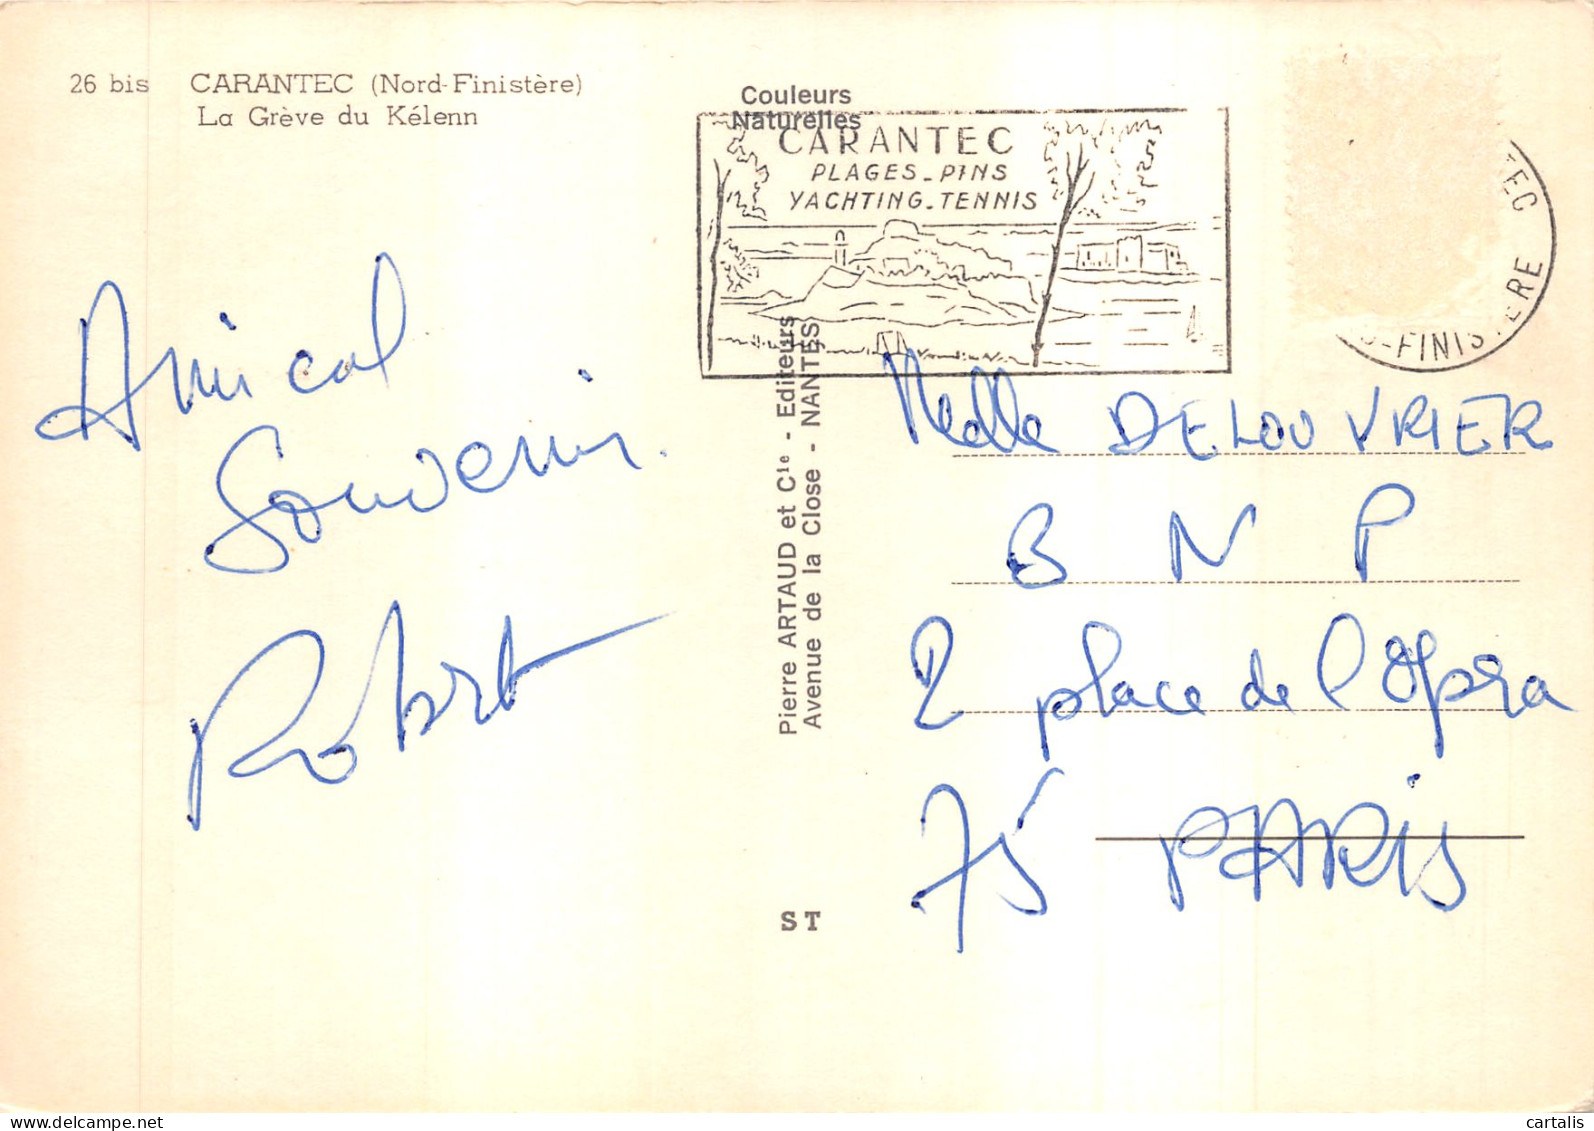 26 bis CARANTEC (Nord-Finistère)
La Grève du Kélenn
Couleurs
Naturelles
CARANTEC
PLAGES-PINS
YACHTING-TENNIS
TEC
-FINISTERE
Amical
Souvenir.
Robert
Pierre ARTAUD et Cie - Editeurs
Avenue de la Close - NANTES
ST
Melle DELOUVRIER
B N P
2 place de l'Opéra
75 PARIS
cartalis